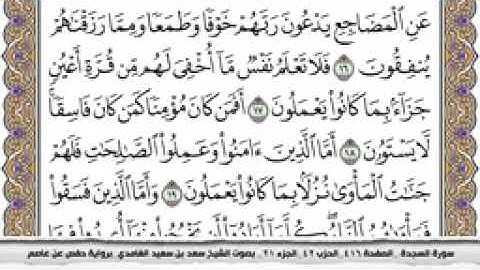 عَنِ ٱلْمَضَاجِعِ يَدْعُونَ رَبَّهُمْ خَوْفًا وَطَمَعًا وَمِمَّا رَزَقْنَٰهُمْ
يُنفِقُونَ ١٦ فَلَا تَعْلَمُ نَفْسٌ مَّآ أُخْفِىَ لَهُم مِّن قُرَّةِ أَعْيُنٍ
جَزَآءًۢ بِمَا كَانُوا۟ يَعْمَلُونَ ١٧ أَفَمَن كَانَ مُؤْمِنًا كَمَن كَانَ فَاسِقًا ۚ
لَّا يَسْتَوُۥنَ ١٨ أَمَّا ٱلَّذِينَ ءَامَنُوا۟ وَعَمِلُوا۟ ٱلصَّٰلِحَٰتِ فَلَهُمْ
جَنَّٰتُ ٱلْمَأْوَىٰ نُزُلًۢا بِمَا كَانُوا۟ يَعْمَلُونَ ١٩ وَأَمَّا ٱلَّذِينَ فَسَقُوا۟
سورة السجدة _الصفحة ٤١٦ _الحزب ٤٢ _الجزء ٢١ _ بصوت الشيخ سعد بن سعيد الغامدي _برواية حفص عن عاصم